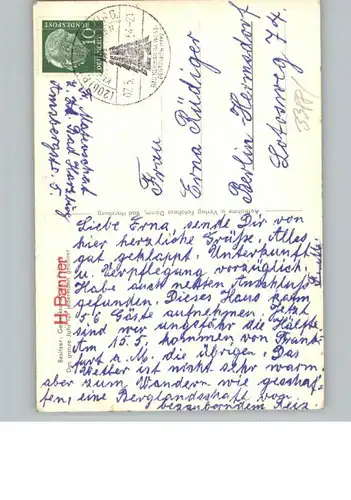 Frau
Erna Rüdiger
Berlin Hermsdorf
Lotosweg 74.
z. Zt. Bad Harzburg
Aufnahme u. Verlag Fotohaus Damm, Bad Harzburg
H. Banner
Besitzer:
DEUTSCHE BUNDESPOST
10
Liebe Erna, sende Dir von
hier herzliche Grüße. Alles
gut geklappt. Unterkunft
u. Verpflegung vorzüglich.
Habe auch netten Anschluß
gefunden. Dieses Haus kann
56 Gäste aufnehmen. Jetzt
sind wir ungefähr die Hälfte
Am 15.5. kommen von Frank-
furt a. M. die übrigen. Das
Wetter ist nicht sehr warm
aber zum Wandern wie geschaf-
fen, eine Berglandschaft von
bezauberndem Reiz.